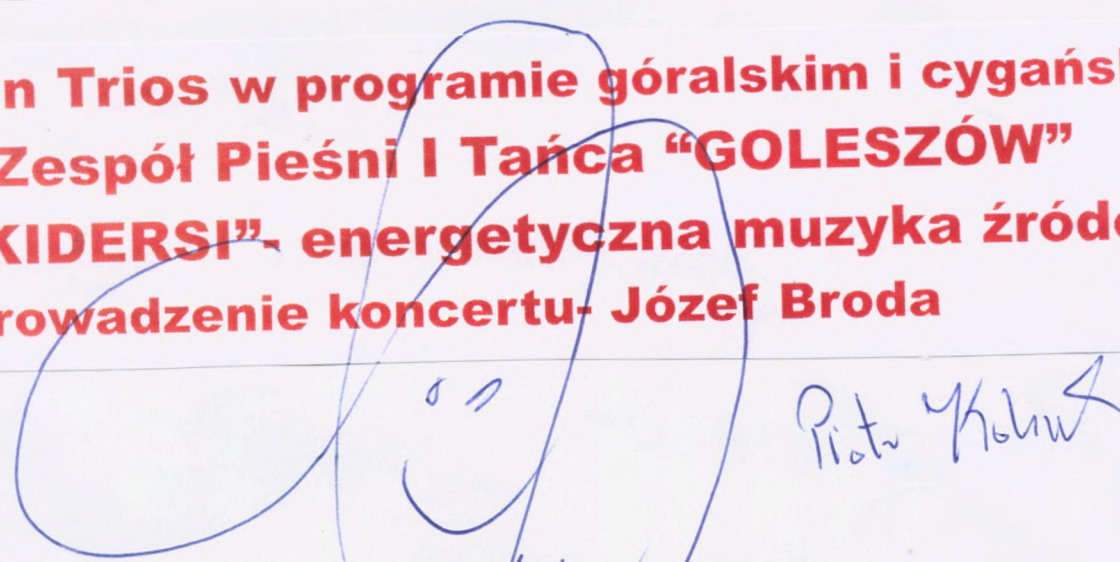 n Trios w programie góralskim i cygańs
Zespół Pieśni I Tańca “GOLESZÓW”
KIDERSI”- energetyczna muzyka źród
rowadzenie koncertu- Józef Broda
Piotr